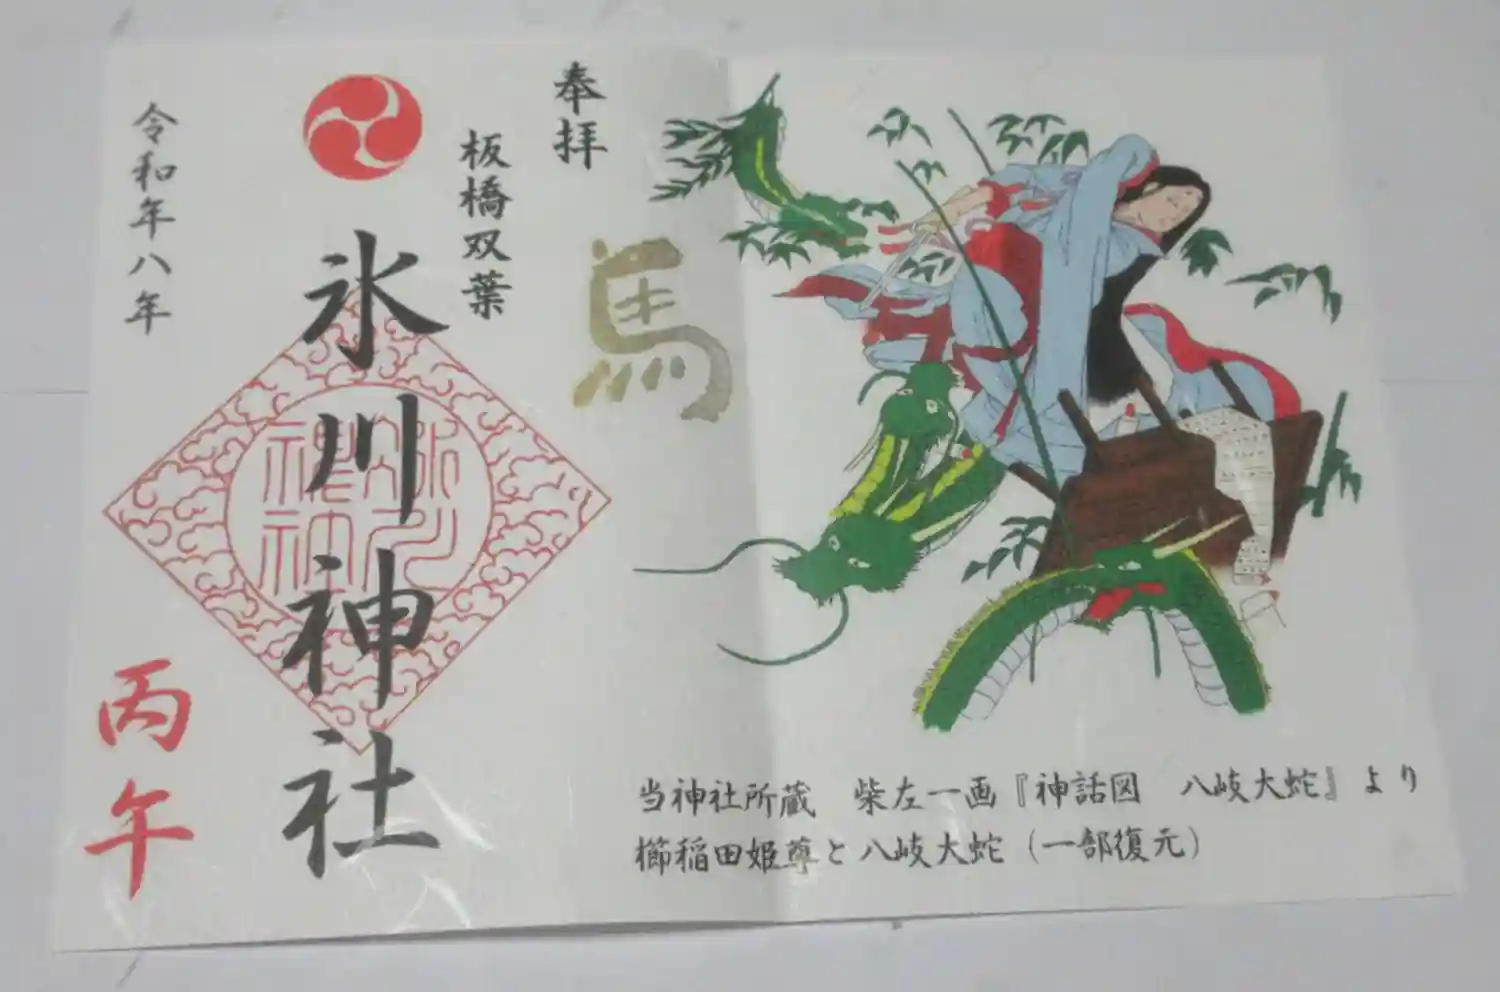 奉拝
板橋双葉
氷川神社
令和年八年
丙午
馬
当神社所蔵　柴左一画『神話図　八岐大蛇』より
櫛稲田姫尊と八岐大蛇（一部復元）